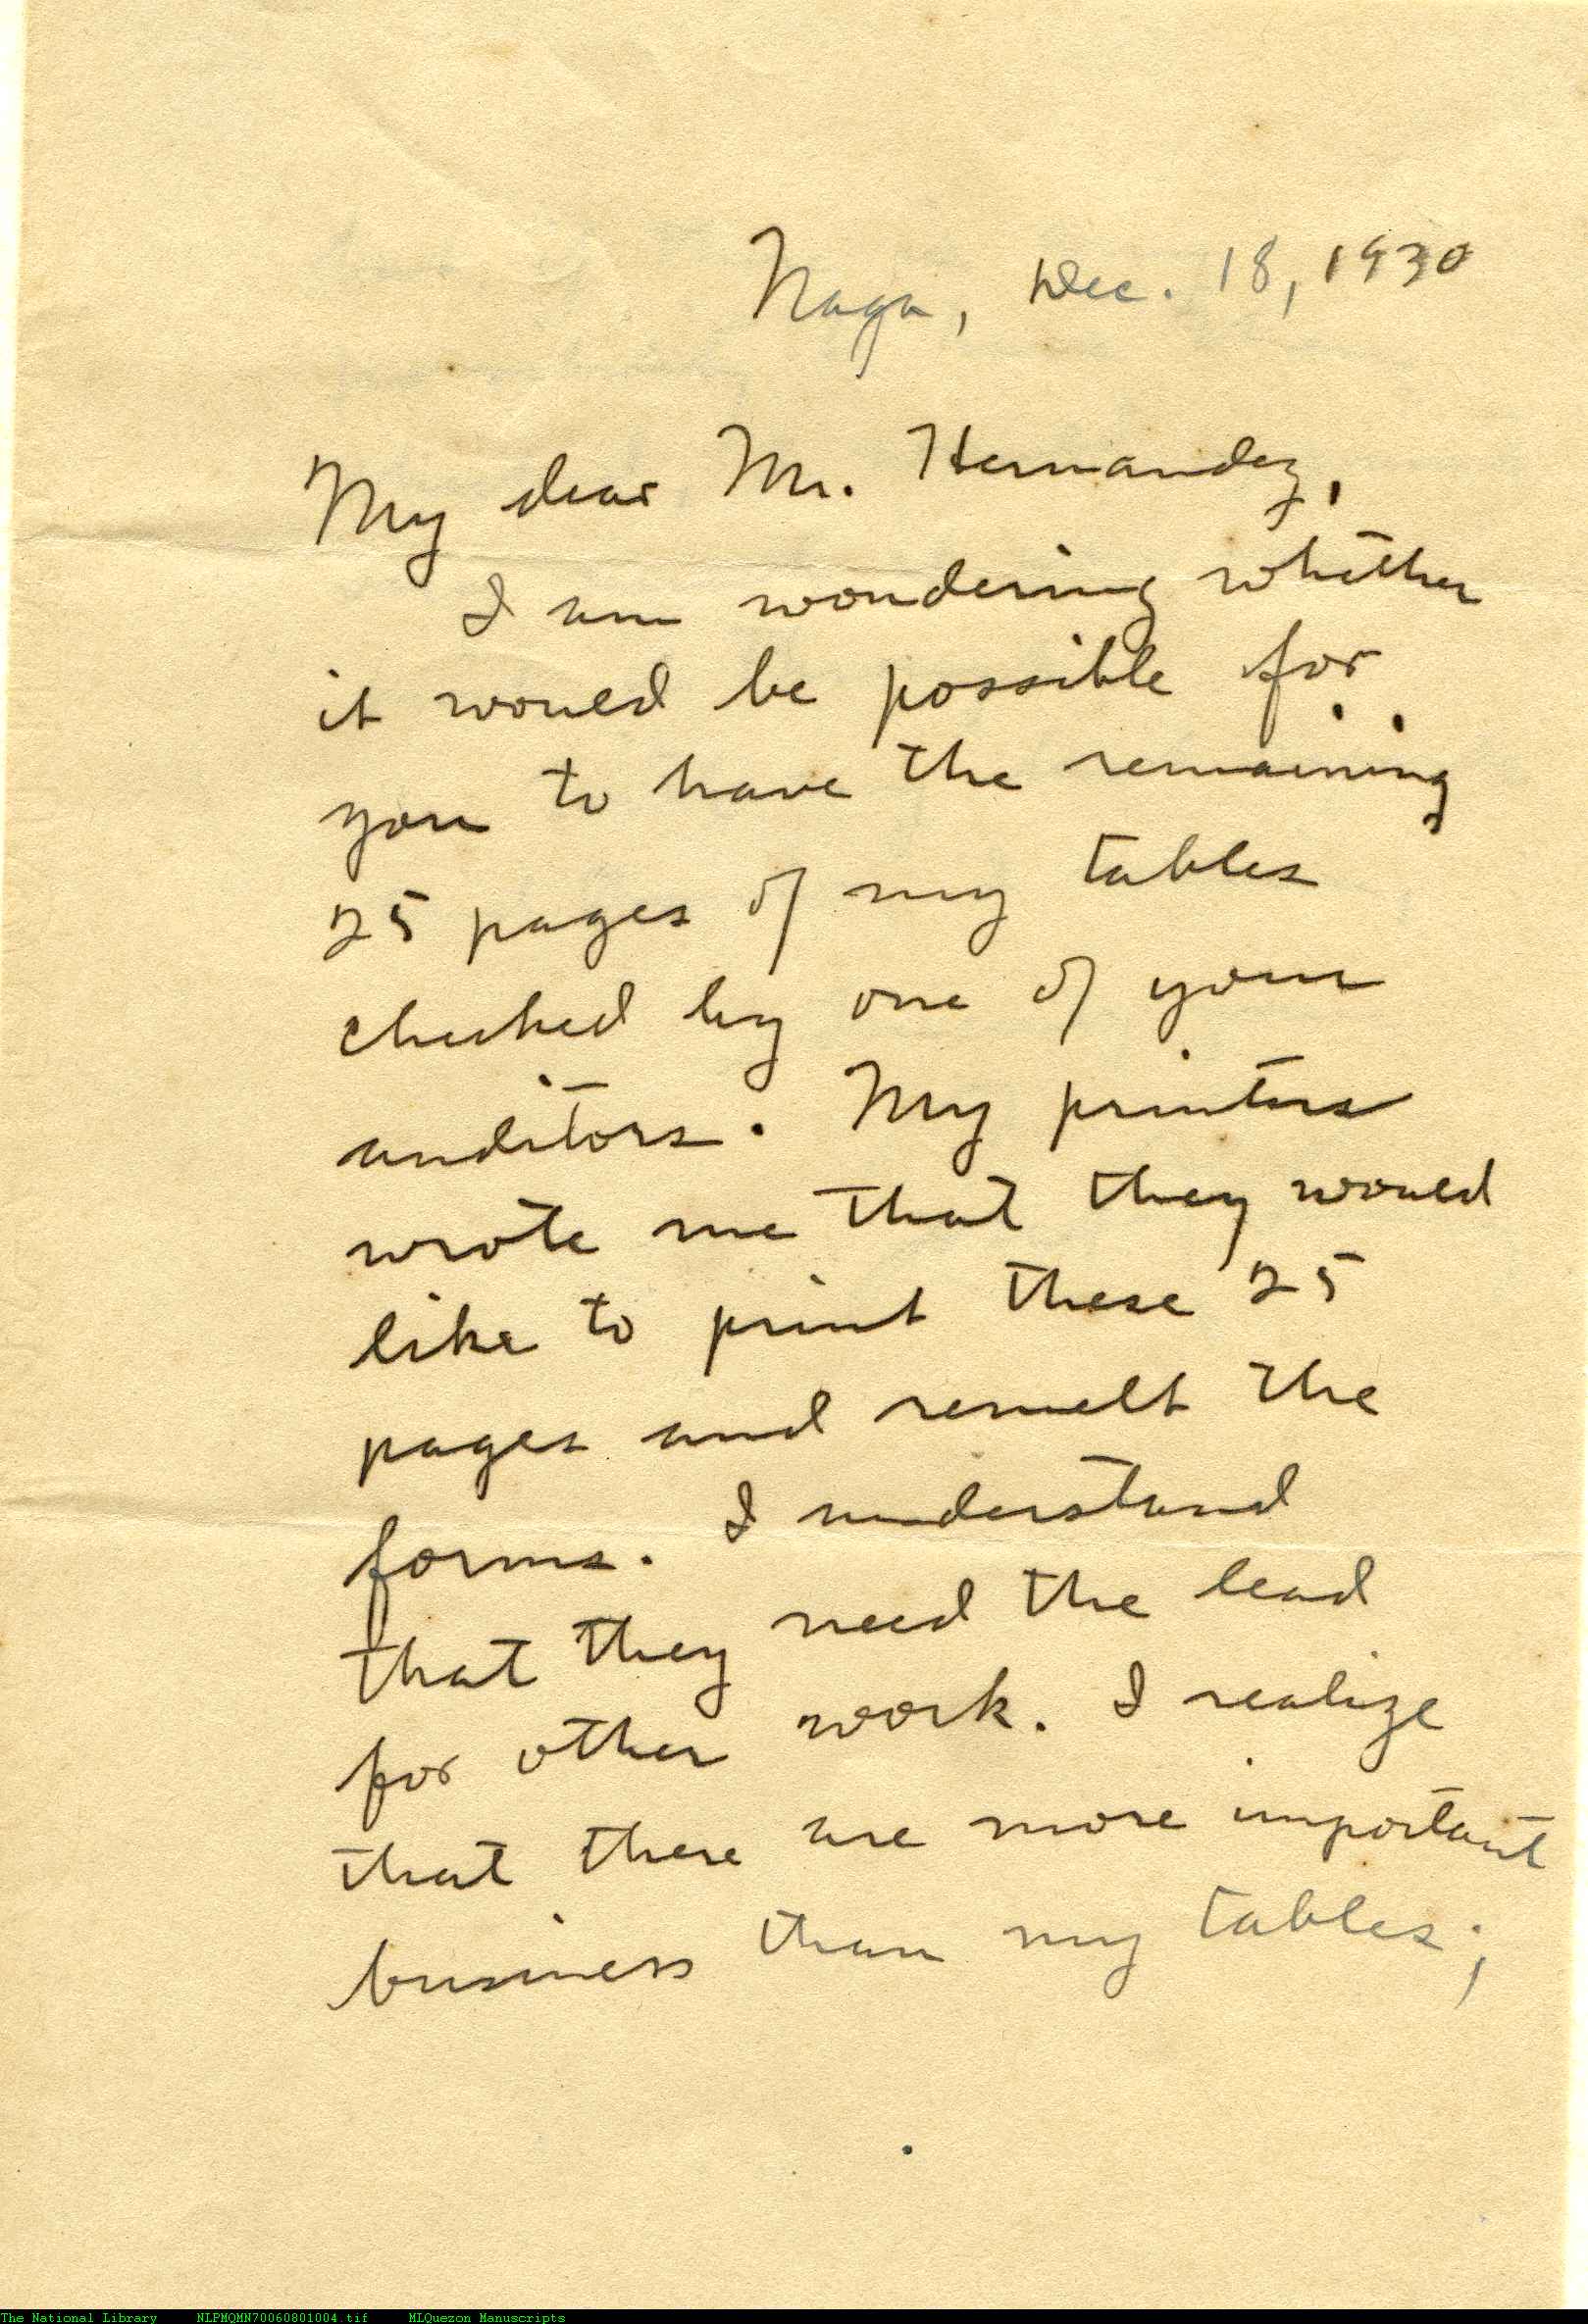 Naga, Dec. 18, 1930
My dear Mr. Hernandez,
I am wondering whether
it would be possible for
you to have the remaining
25 pages of my tables
checked by one of your
auditors. My printers
wrote me that they would
like to print these 25
pages and remelt the
forms. I understand
that they need the lead
for other work. I realize
that there are more important
business than my tables;
The National Library NLPMQMN70060801004.tif MLQuezon Manuscripts